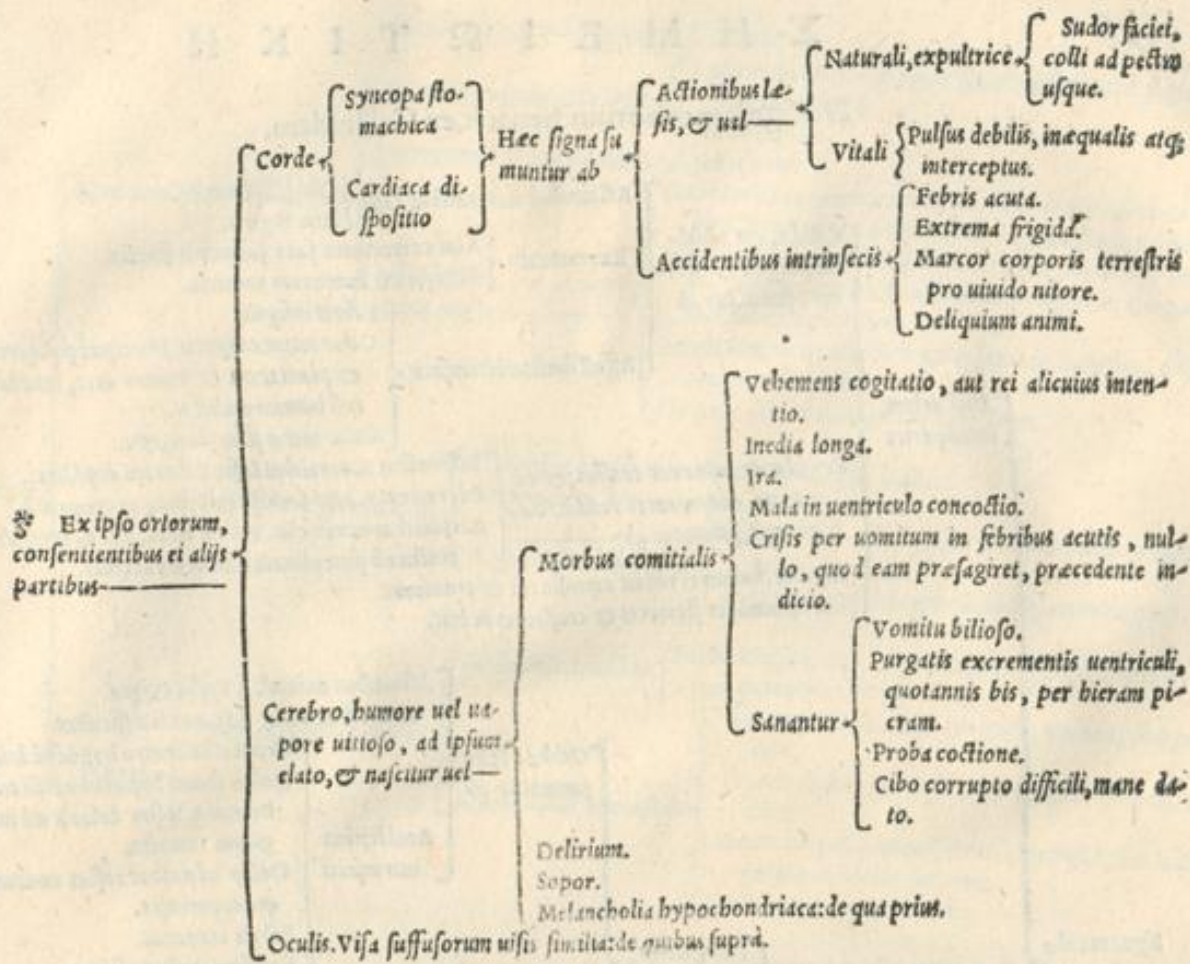 Ex ipso ortorum,
consentientibus ei alijs
partibus
Corde
Syncopa sto-
machica
Cardiaca di-
spositio
Hæc signa su
muntur ab
Actionibus læ-
sis, & uel
Naturali, expultrice
Sudor faciei,
colli ad pectus
usque.
Vitali
Pulsus debilis, inæqualis atq;
interceptus.
Accidentibus intrinsecis
Febris acuta.
Extrema frigida.
Marcor corporis terrestris
pro uiuido nitore.
Deliquium animi.
Cerebro, humore uel ua-
pore uitioso, ad ipsum
elato, & nascitur uel
Morbus comitialis
Vehemens cogitatio, aut rei alicuius inten-
tio.
Inedia longa.
Ira.
Mala in uentriculo concoctio.
Crisis per uomitum in febribus acutis, nul-
lo, quod eam præsagiret, præcedente in-
dicio.
Sanantur
Vomitu bilioso.
Purgatis excrementis uentriculi,
quotannis bis, per hieram pi-
cram.
Proba coctione.
Cibo corrupto difficili, mane da-
to.
Delirium.
Sopor.
Melancholia hypochondriaca: de qua prius.
Oculis. Visa suffusorum uisis similia: de quibus suprà.